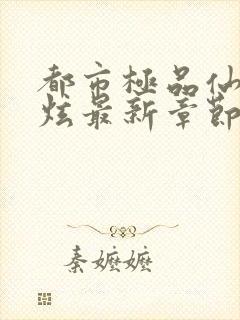 都市極品仙
炫最新章節
秦嬤嬤